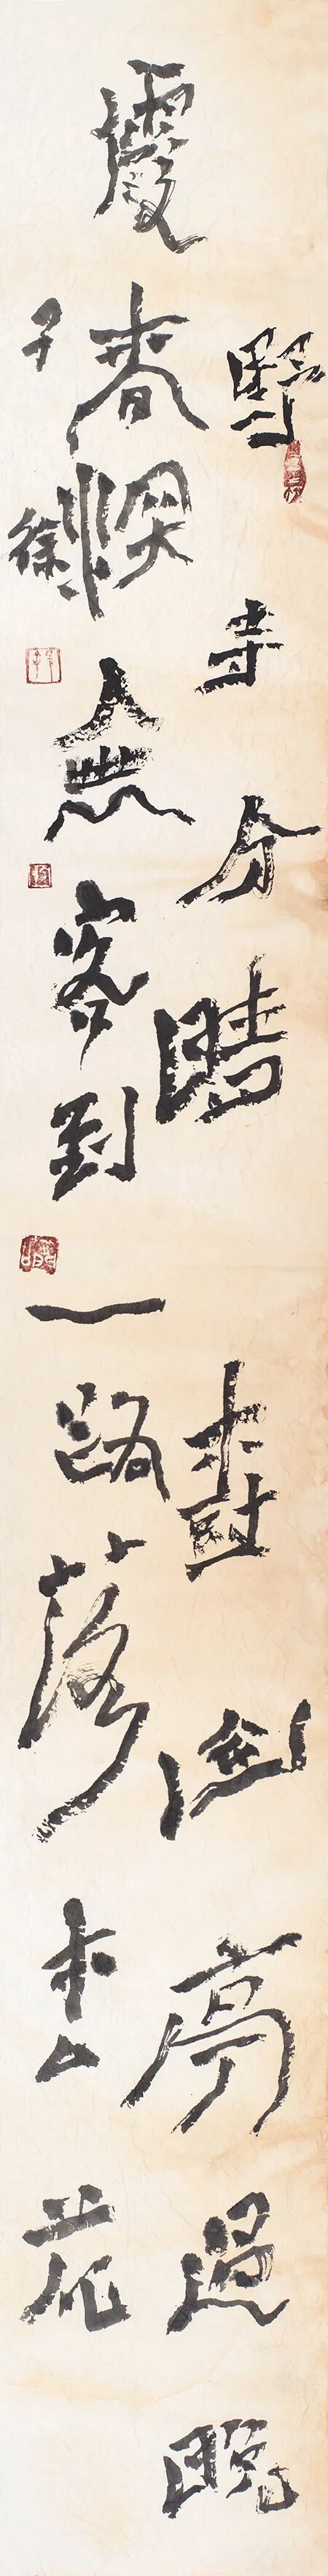 野寺分晴樹山亭過晚
霞春深無客到一路落松花
徐